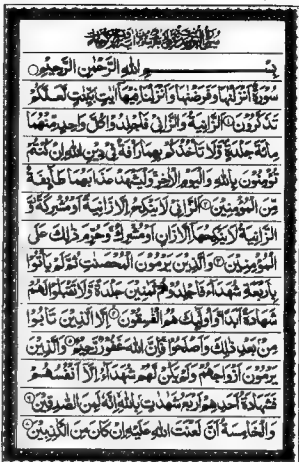 بِسْمِ اللهِ الرَّحْمٰنِ الرَّحِيْمِ
سُوْرَةٌ اَنْزَلْنٰهَا وَفَرَضْنٰهَا وَاَنْزَلْنَا فِيْهَآ اٰيٰتٍۭ بَيِّنٰتٍ لَّعَلَّكُمْ
تَذَكَّرُوْنَ ۱ اَلزَّانِيَةُ وَالزَّانِيْ فَاجْلِدُوْا كُلَّ وَاحِدٍ مِّنْهُمَا
مِائَةَ جَلْدَةٍ وَّلَا تَاْخُذْكُمْ بِهِمَا رَاْفَةٌ فِيْ دِيْنِ اللهِ اِنْ كُنْتُمْ
تُؤْمِنُوْنَ بِاللهِ وَالْيَوْمِ الْاٰخِرِ وَلْيَشْهَدْ عَذَابَهُمَا طَآئِفَةٌ
مِّنَ الْمُؤْمِنِيْنَ ۲ اَلزَّانِيْ لَا يَنْكِحُ اِلَّا زَانِيَةً اَوْ مُشْرِكَةً وَّ
الزَّانِيَةُ لَا يَنْكِحُهَآ اِلَّا زَانٍ اَوْ مُشْرِكٌ وَحُرِّمَ ذٰلِكَ عَلَى
الْمُؤْمِنِيْنَ ۳ وَالَّذِيْنَ يَرْمُوْنَ الْمُحْصَنٰتِ ثُمَّ لَمْ يَاْتُوْا
بِاَرْبَعَةِ شُهَدَآءَ فَاجْلِدُوْهُمْ ثَمٰنِيْنَ جَلْدَةً وَّلَا تَقْبَلُوْا لَهُمْ
شَهَادَةً اَبَدًا وَاُولٰٓئِكَ هُمُ الْفٰسِقُوْنَ ۴ اِلَّا الَّذِيْنَ تَابُوْا
مِنْۢ بَعْدِ ذٰلِكَ وَاَصْلَحُوْا فَاِنَّ اللهَ غَفُوْرٌ رَّحِيْمٌ ۵ وَالَّذِيْنَ
يَرْمُوْنَ اَزْوَاجَهُمْ وَلَمْ يَكُنْ لَّهُمْ شُهَدَآءُ اِلَّآ اَنْفُسُهُمْ
فَشَهَادَةُ اَحَدِهِمْ اَرْبَعُ شَهٰدٰتٍۭ بِاللهِ اِنَّهٗ لَمِنَ الصّٰدِقِيْنَ ۶
وَالْخَامِسَةُ اَنَّ لَعْنَتَ اللهِ عَلَيْهِ اِنْ كَانَ مِنَ الْكٰذِبِيْنَ ۷